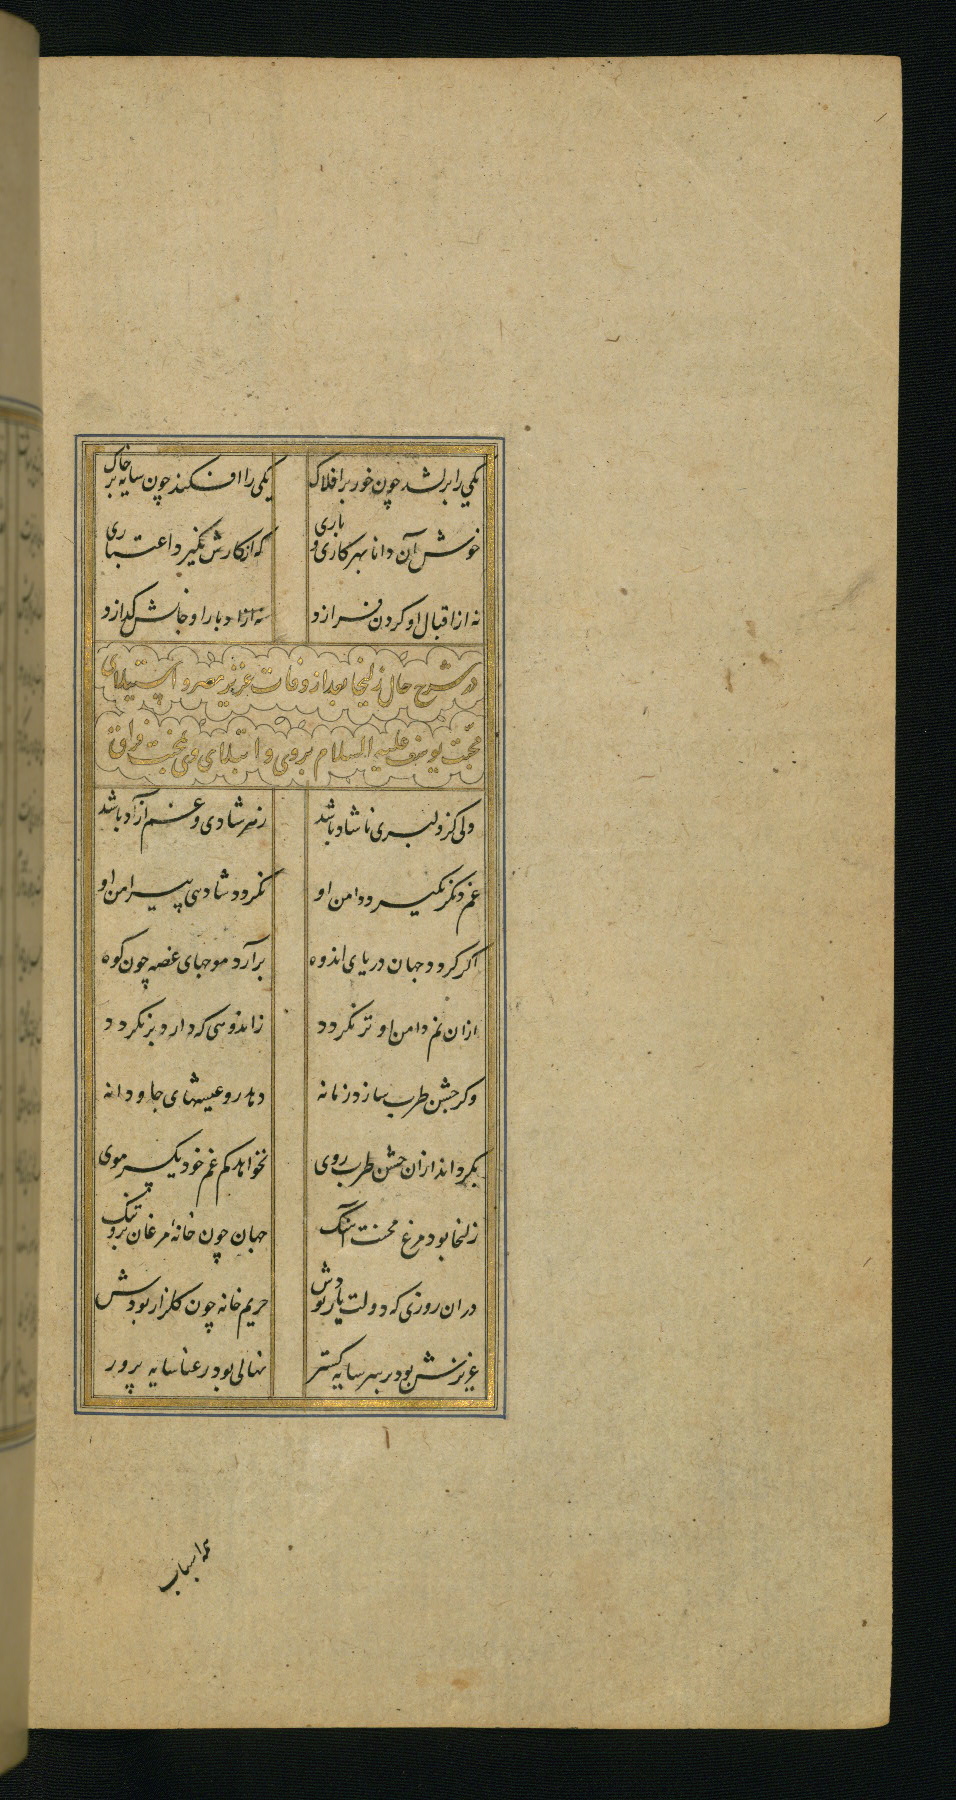 یکی را برکشد چون خور بر افلاک یکی را افکند چون سایه بر خاک
خوش آن دانا بهر کاری و باری که از کارش نگیرد اعتباری
نه از اقبال او گردن فرازد نه از ادبار او جانش گدازد
در شرح حال زلیخا بعد از وفات عزیز مصر و استیلای
محبت یوسف علیه السلام بروی و ابتلای وی بمحنت فراق
دلی کز دلبری ناشاد باشد زهر شادی و غم آزاد باشد
غم دیگر نگیرد دامن او نگردد شادیی پیرامن او
اگر گردد جهان دریای اندوه برآرد موجهای غصه چون کوه
ازان نم دامن او تر نگردد ز اندوهی که دارد بر نگردد
وگر جشن طرب سازد زمانه دهد رو عیشهای جاودانه
بگرداند ازان جشن طرب روی نخواهد کم غم خود یک سر موی
زلیخا بود مرغ محنت آهنگ جهان چون خانه مرغان برو تنگ
دران روزی که دولت یار بودش حریم خانه چون گلزار بودش
عزیزش بود بر سر سایه گستر نهالی بود رعنا سایه پرور
همه اسباب